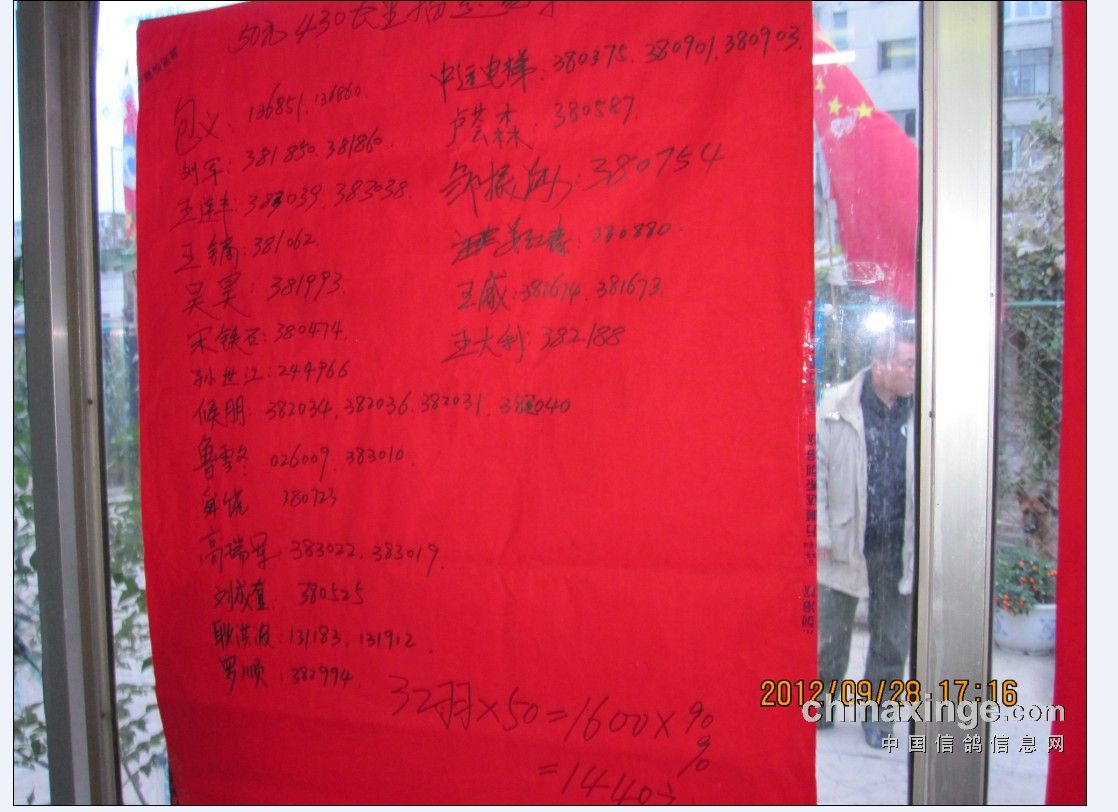 50元430长
包义: 136851.136860.
刘军: 381850.381860.
王连丰: 383039.383038.
王镝: 381062.
吴昊: 381993.
宋铁石: 380474.
孙世江: 244966
候朋: 382034.382036.382031.382040
鲁 026009.383010.
380723
高瑞军: 383022.383019.
刘成 380525
耿洪波: 131183.131912.
罗顺: 382994.
中远电梯: 380375.380901.380903.
卢芸森: 380587.
邹振海: 380754
380880
王威: 381674.381673.
王大利: 382188
32羽×50=1600×90%
=1440
2012/09/28 17:16
chinaxinge.com
中国信鸽信息网